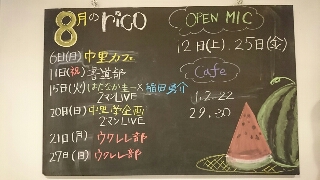 8月のrico
6日(月) 中里カフェ
11日(祝) 書道部
15日(火) はたなかまーく×稲田秀介
2マンLIVE
20日(日) 中里学企画
2マンLIVE
21日(月) ウクレレ部
27日(日) ウクレレ部
OPEN MIC
12日(土), 25日(金)
Cafe
1.2.22
29.30